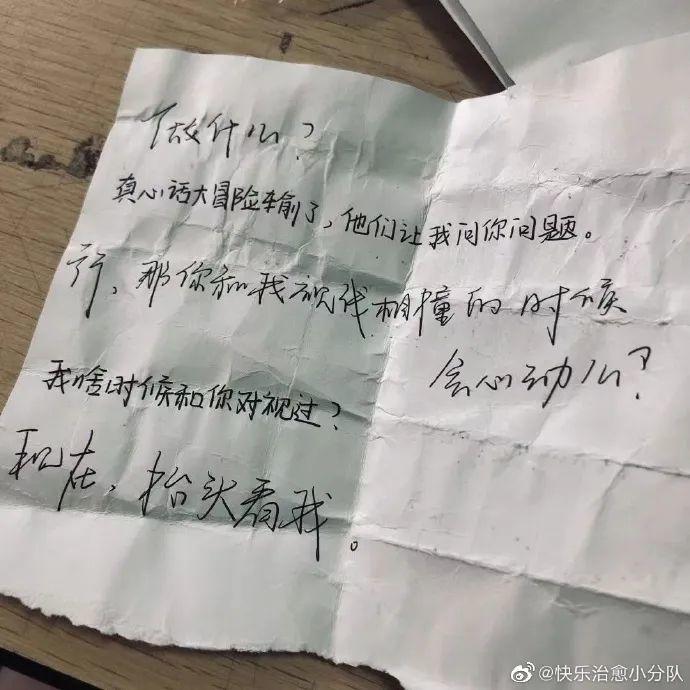 做什么?
真心话大冒险输了,他们让我问你问题。
行,那你和我视线相撞的时候
会心动么?
我啥时候和你对视过?
现在,抬头看我。
@快乐治愈小分队